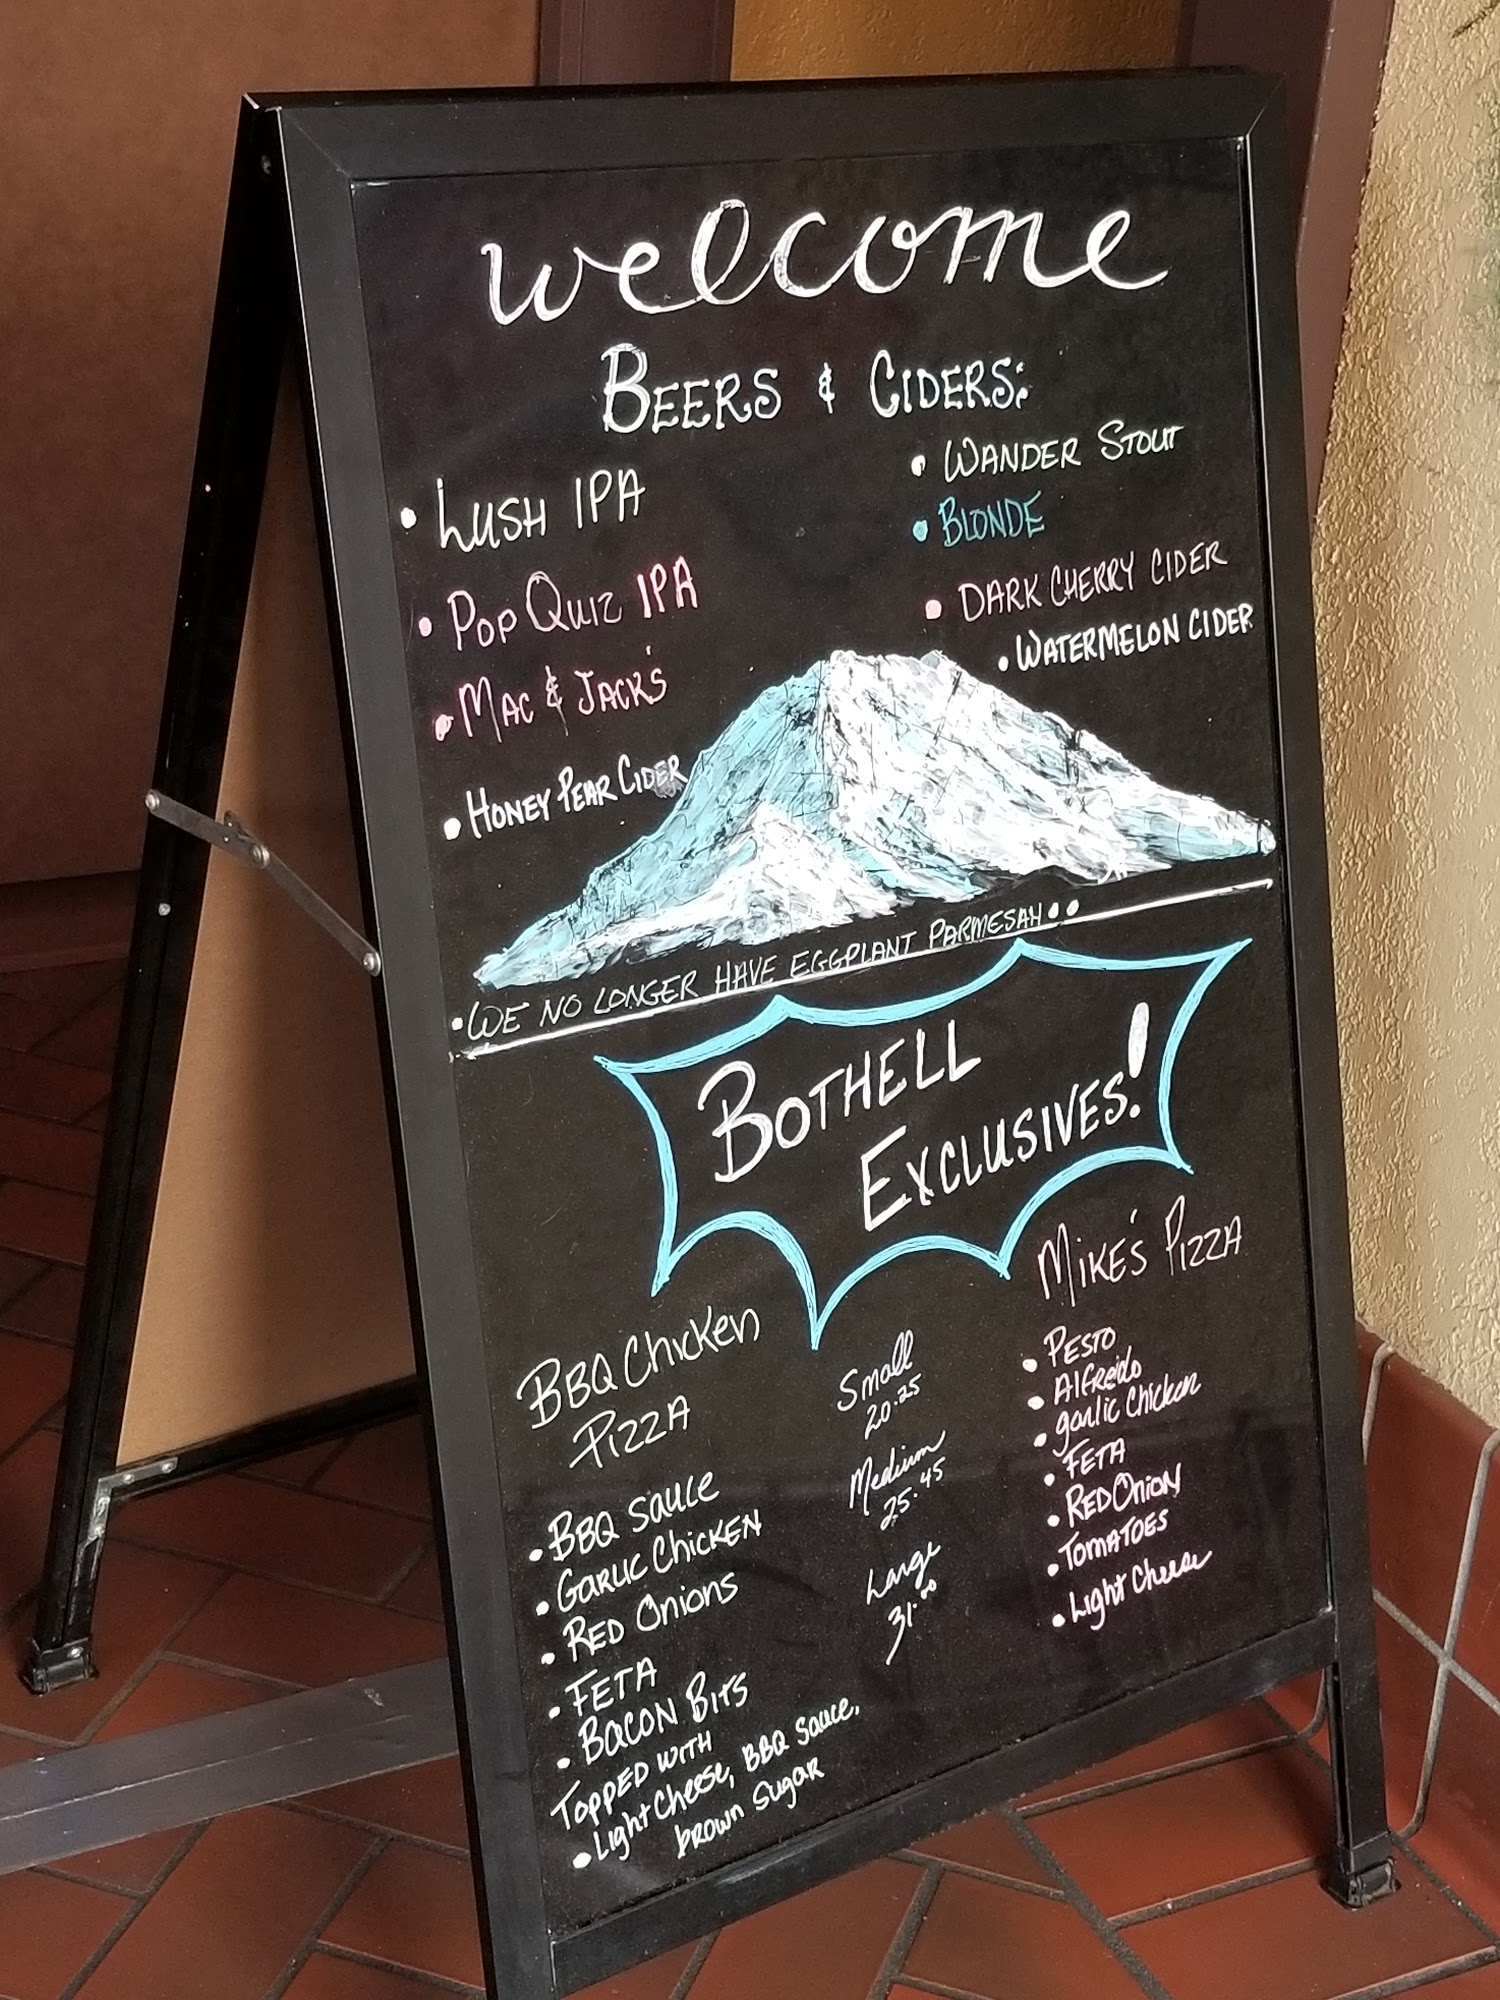 welcome
BEERS & CIDERS:
• LUSH IPA
• POP QUIZ IPA
• MAC & JACK'S
• HONEY PEAR CIDER
• WANDER STOUT
• BLONDE
• DARK CHERRY CIDER
• WATERMELON CIDER
• WE NO LONGER HAVE EGGPLANT PARMESAN ••
BOTHELL
EXCLUSIVES!
BBQ Chicken
PIZZA
• BBQ sauce
• GARLIC CHICKEN
• RED Onions
• FETA
• BACON BITS
TOPPED WITH
• Light Cheese, BBQ sauce,
brown sugar
Small
20.25
Medium
25.45
Large
31.00
MIKE'S PIZZA
• PESTO
• Alfredo
• garlic chicken
• FETA
• RED ONION
• TOMATOES
• Light Cheese